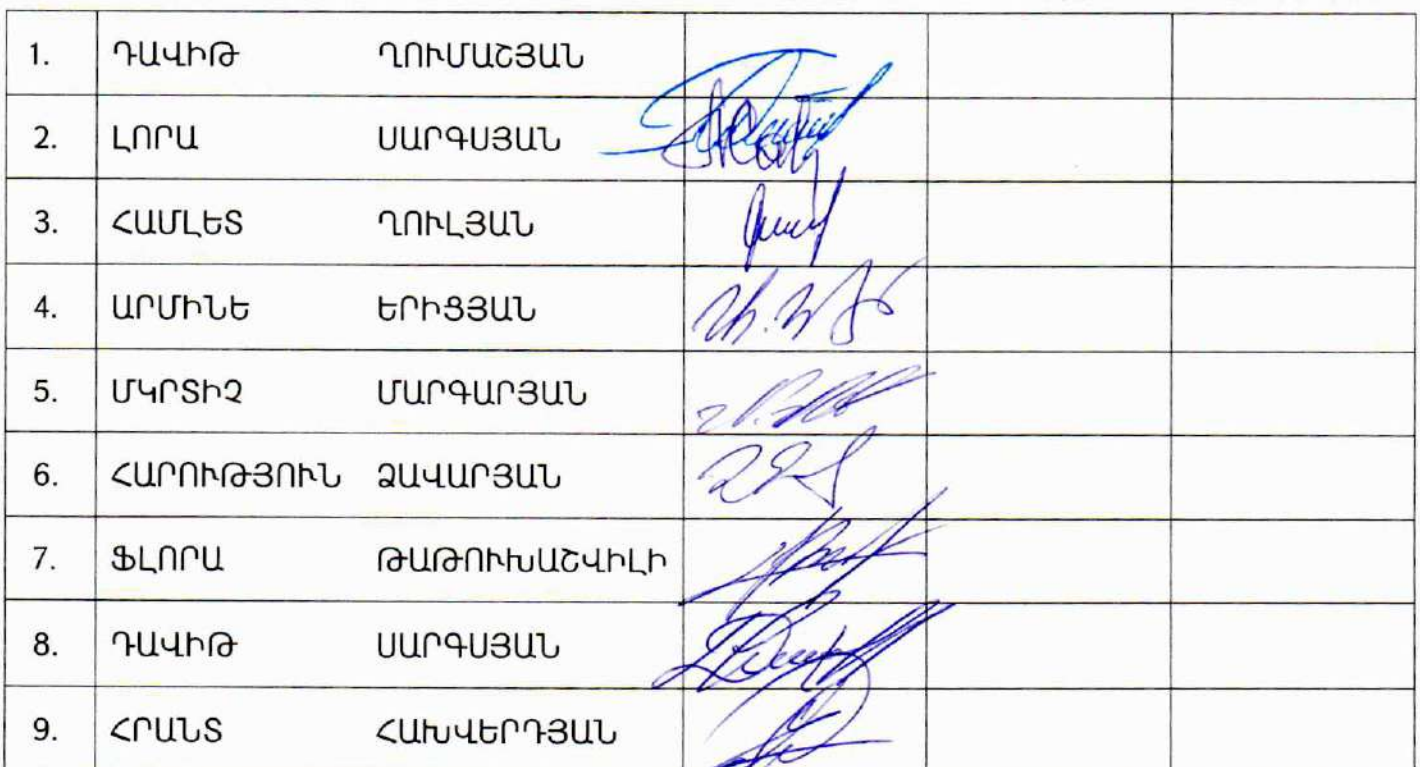 1. ԴԱՎԻԹ ՂՈՒՄԱՇՅԱՆ
2. ԼՈՐԱ ՍԱՐԳՍՅԱՆ
3. ՀԱՄԼԵՏ ՂՈՒԼՅԱՆ
4. ԱՐՄԻՆԵ ԵՐԻՑՅԱՆ
5. ՄԿՐՏԻՉ ՄԱՐԳԱՐՅԱՆ
6. ՀԱՐՈՒԹՅՈՒՆ ՁԱՎԱՐՅԱՆ
7. ՖԼՈՐԱ ԹԱԹՈՒԽԱՇՎԻԼԻ
8. ԴԱՎԻԹ ՍԱՐԳՍՅԱՆ
9. ՀՐԱՆՏ ՀԱԽՎԵՐԴՅԱՆ